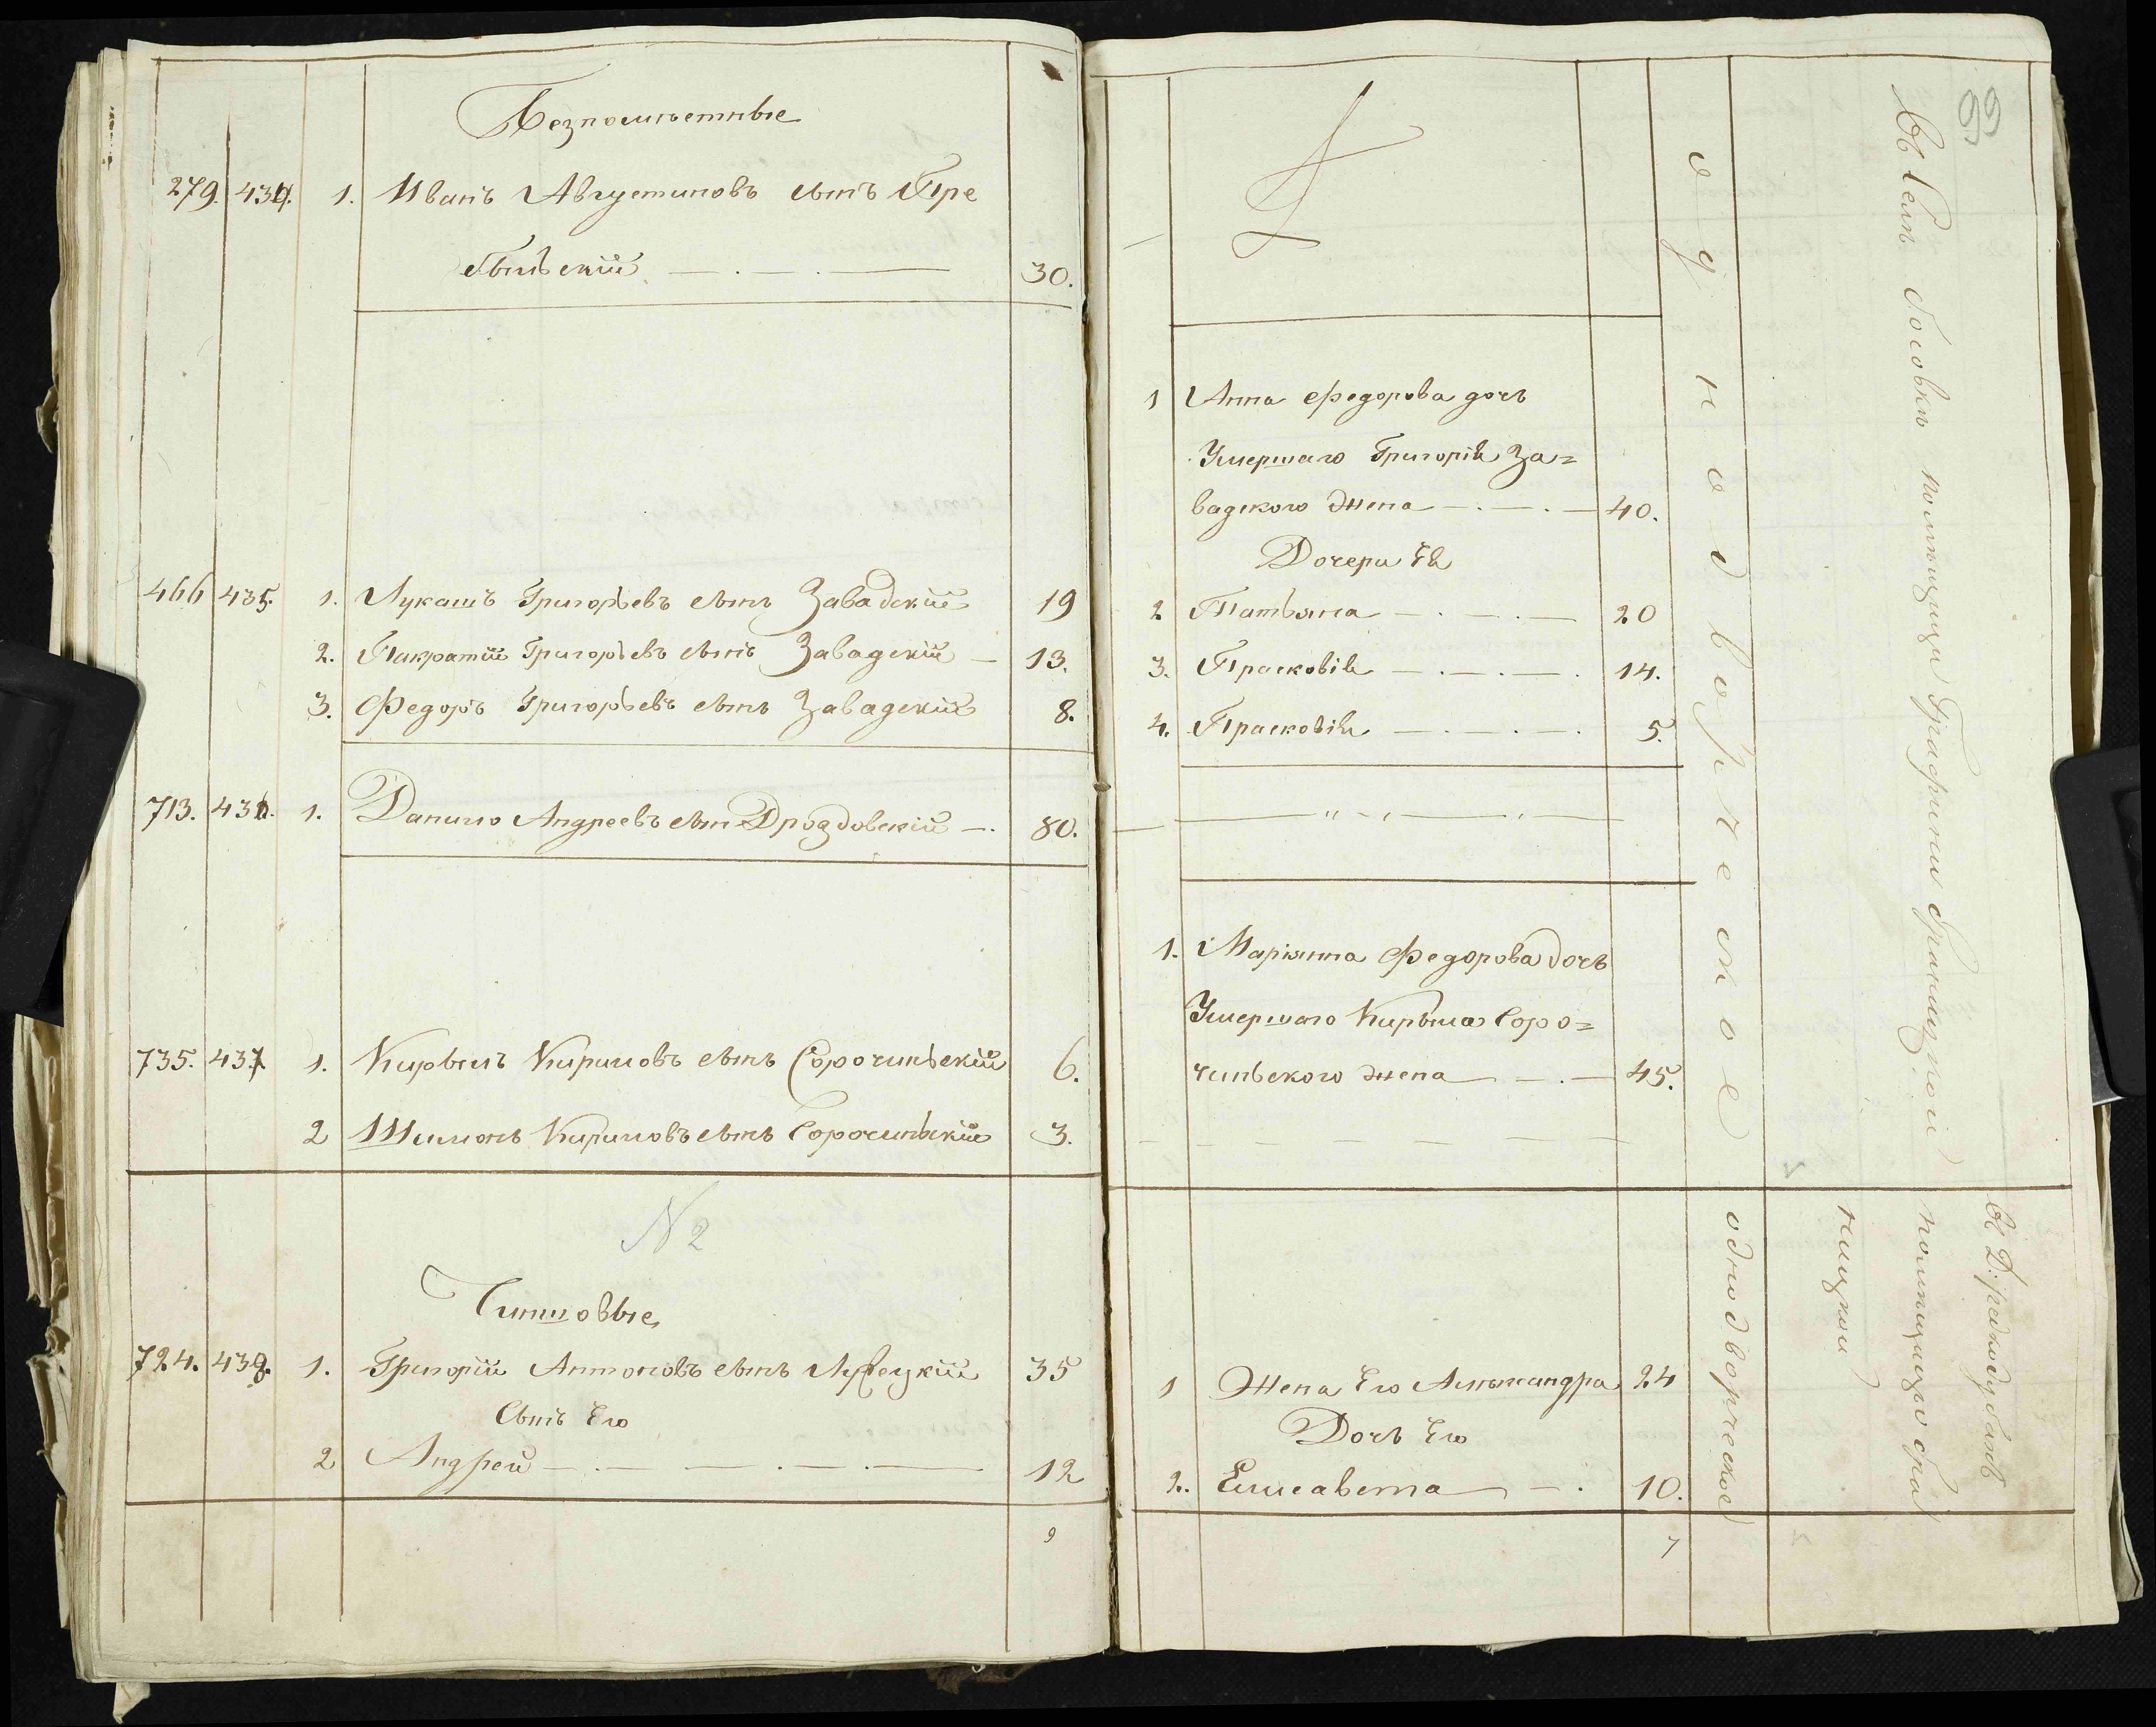 Безпомѣстные
279. 434. 1. Иванъ Августиновъ сынъ Тре
быньскій 30.
466 435. 1. Лукашъ Григорьевъ сынъ Завадскій 19
2. Пакратій Григорьевъ сынъ Завадскій 13.
3. Федоръ Григорьевъ сынъ Завадскій 8.
713. 436. 1. Данило Андреевъ сынъ Дроздовскій 80.
735. 437 1. Кирылъ Кириловъ сынъ Сорочиньскій 6.
2 Шимонъ Кириловъ сынъ Сорочинькій 3.
N 2
Чиншовые
724. 438. 1. Григорій Антоновъ сынъ 35
Сынъ Его
2 Андрей 12
9
99
1 Анна Федорова дочь
Умершаго Григорія За=
вадского жена 40.
Дочери Ея
2 Татьяна 20
3. Прасковія 14.
4. Прасковія 5.
1. Маріянна Федорова дочь
Умершаго Кирыла Соро=
чинского жена 45.
1 Жена Его Александра 24
Дочь Его
2. Елисавета 10.
7
однодворческое
Въ Селѣ помѣщицы Графини Браницкой
однодворческое
Въ Д:
помѣщицы Бра
ницкой